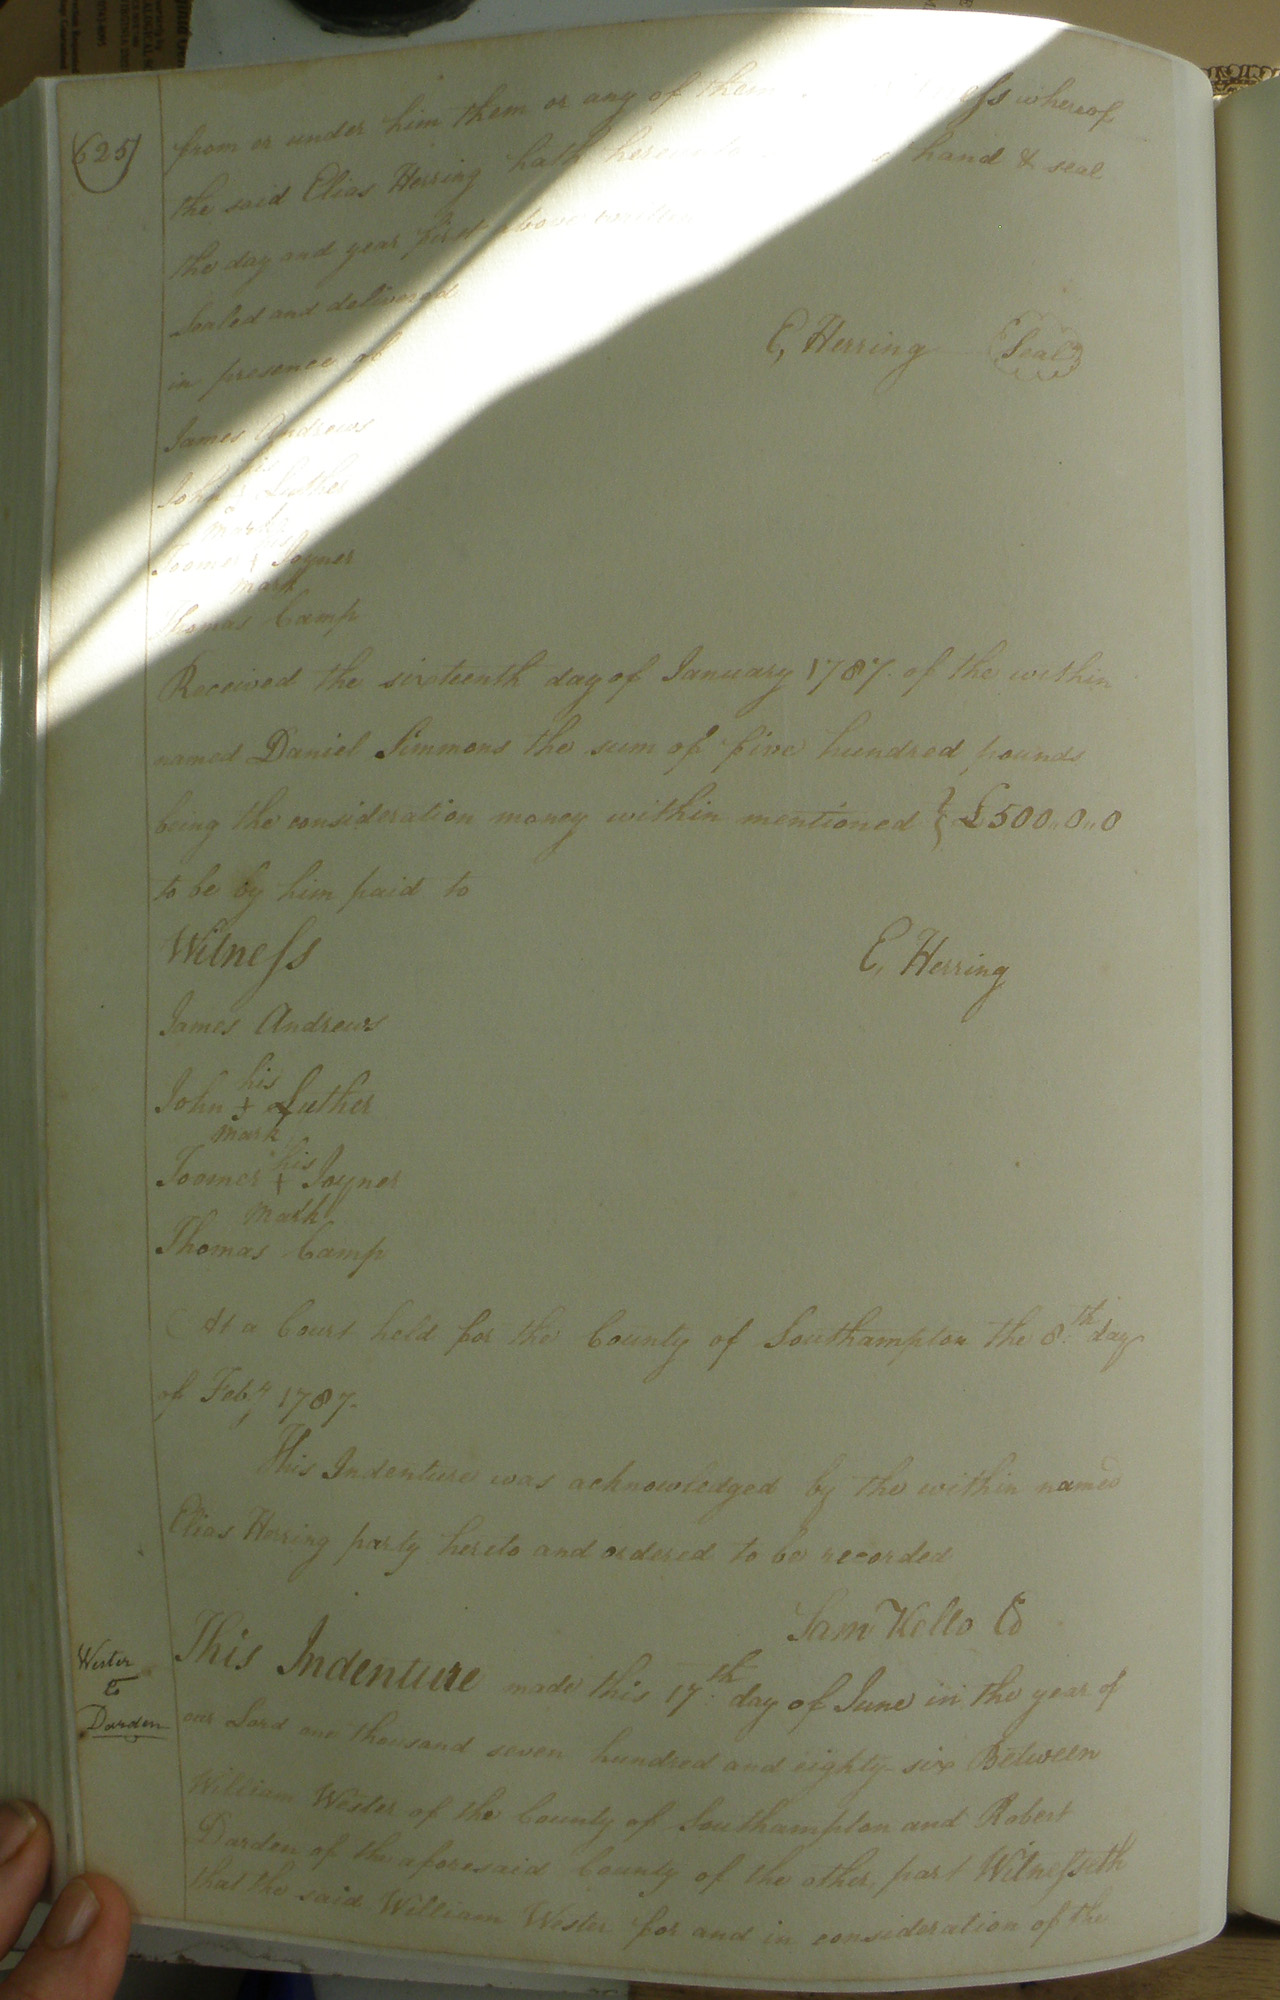 625
from or under him them or any of them whereof
the said Elias Herring hath hereunto hand & seal
the day and year first above written
Sealed and delivered
in presence of
E, Herring Seal
James Andrews
his
John Luther
mark
Toomer + Joyner
mark
Thomas Camp
Received the sixteenth day of January 1787. of the within
named Daniel Simmons the sum of five hundred pounds
being the consideration money within mentioned } £500..0..0
to be by him paid to
Witness
E, Herring
James Andrews
his
John + Luther
mark
his
Toomer + Joyner
mark
Thomas Camp
At a Court held for the County of Southampton the 8th day
of Feby 1787.
This Indenture was acknowledged by the within named
Elias Herring party hereto and ordered to be recorded
Sam Kello
Wester
to
Darden
This Indenture made this 17th day of June in the year of
our Lord one thousand seven hundred and eighty six Between
William Wester of the County of Southampton and Robert
Darden of the aforesaid County of the other part Witnesseth
that the said William Wester for and in consideration of the